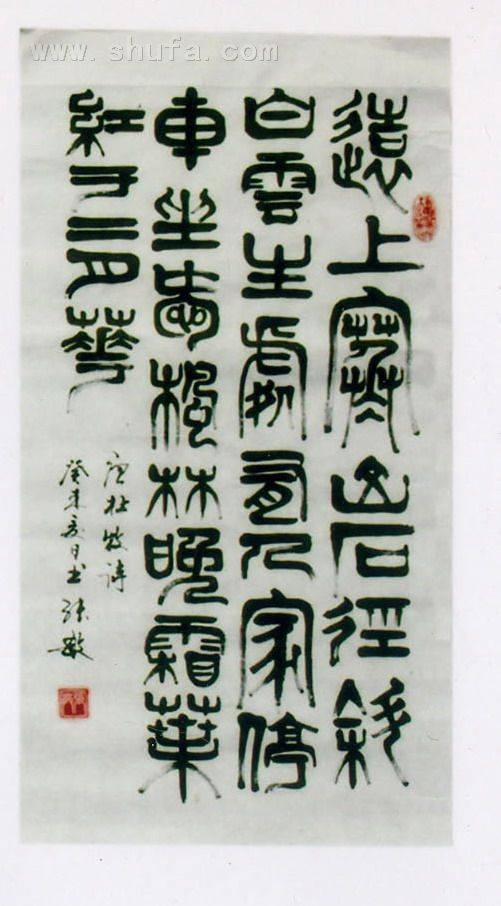 www.shufa.com
遠上寒山石徑斜
白雲生處有人家停
車坐愛楓林晚霜葉
紅于二月華
唐杜牧诗
癸未夏日书张敏